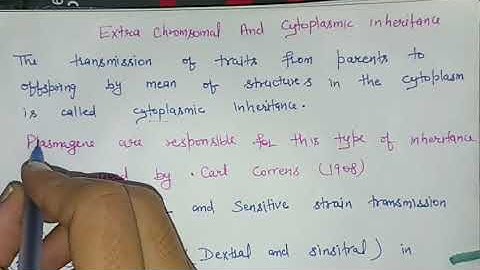 Extra Chromsomal And Cytoplasmic inheritance
The transmission of traits from parents to
offspring by mean of structures in the cytoplasm
is called cytoplasmic inheritance.
Plasmagene are responsible for this type of inheritance
by . Carl Correns (1908)
and Sensitive strain transmission
Dextral and sinsitral) in